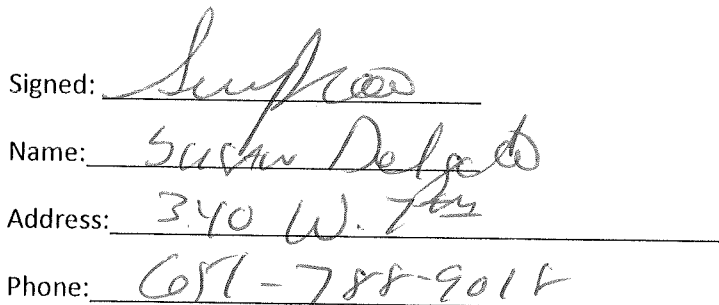 Signed:
Name: Susan Delgado
Address: 340 W. 7th
Phone: 651-788-9018